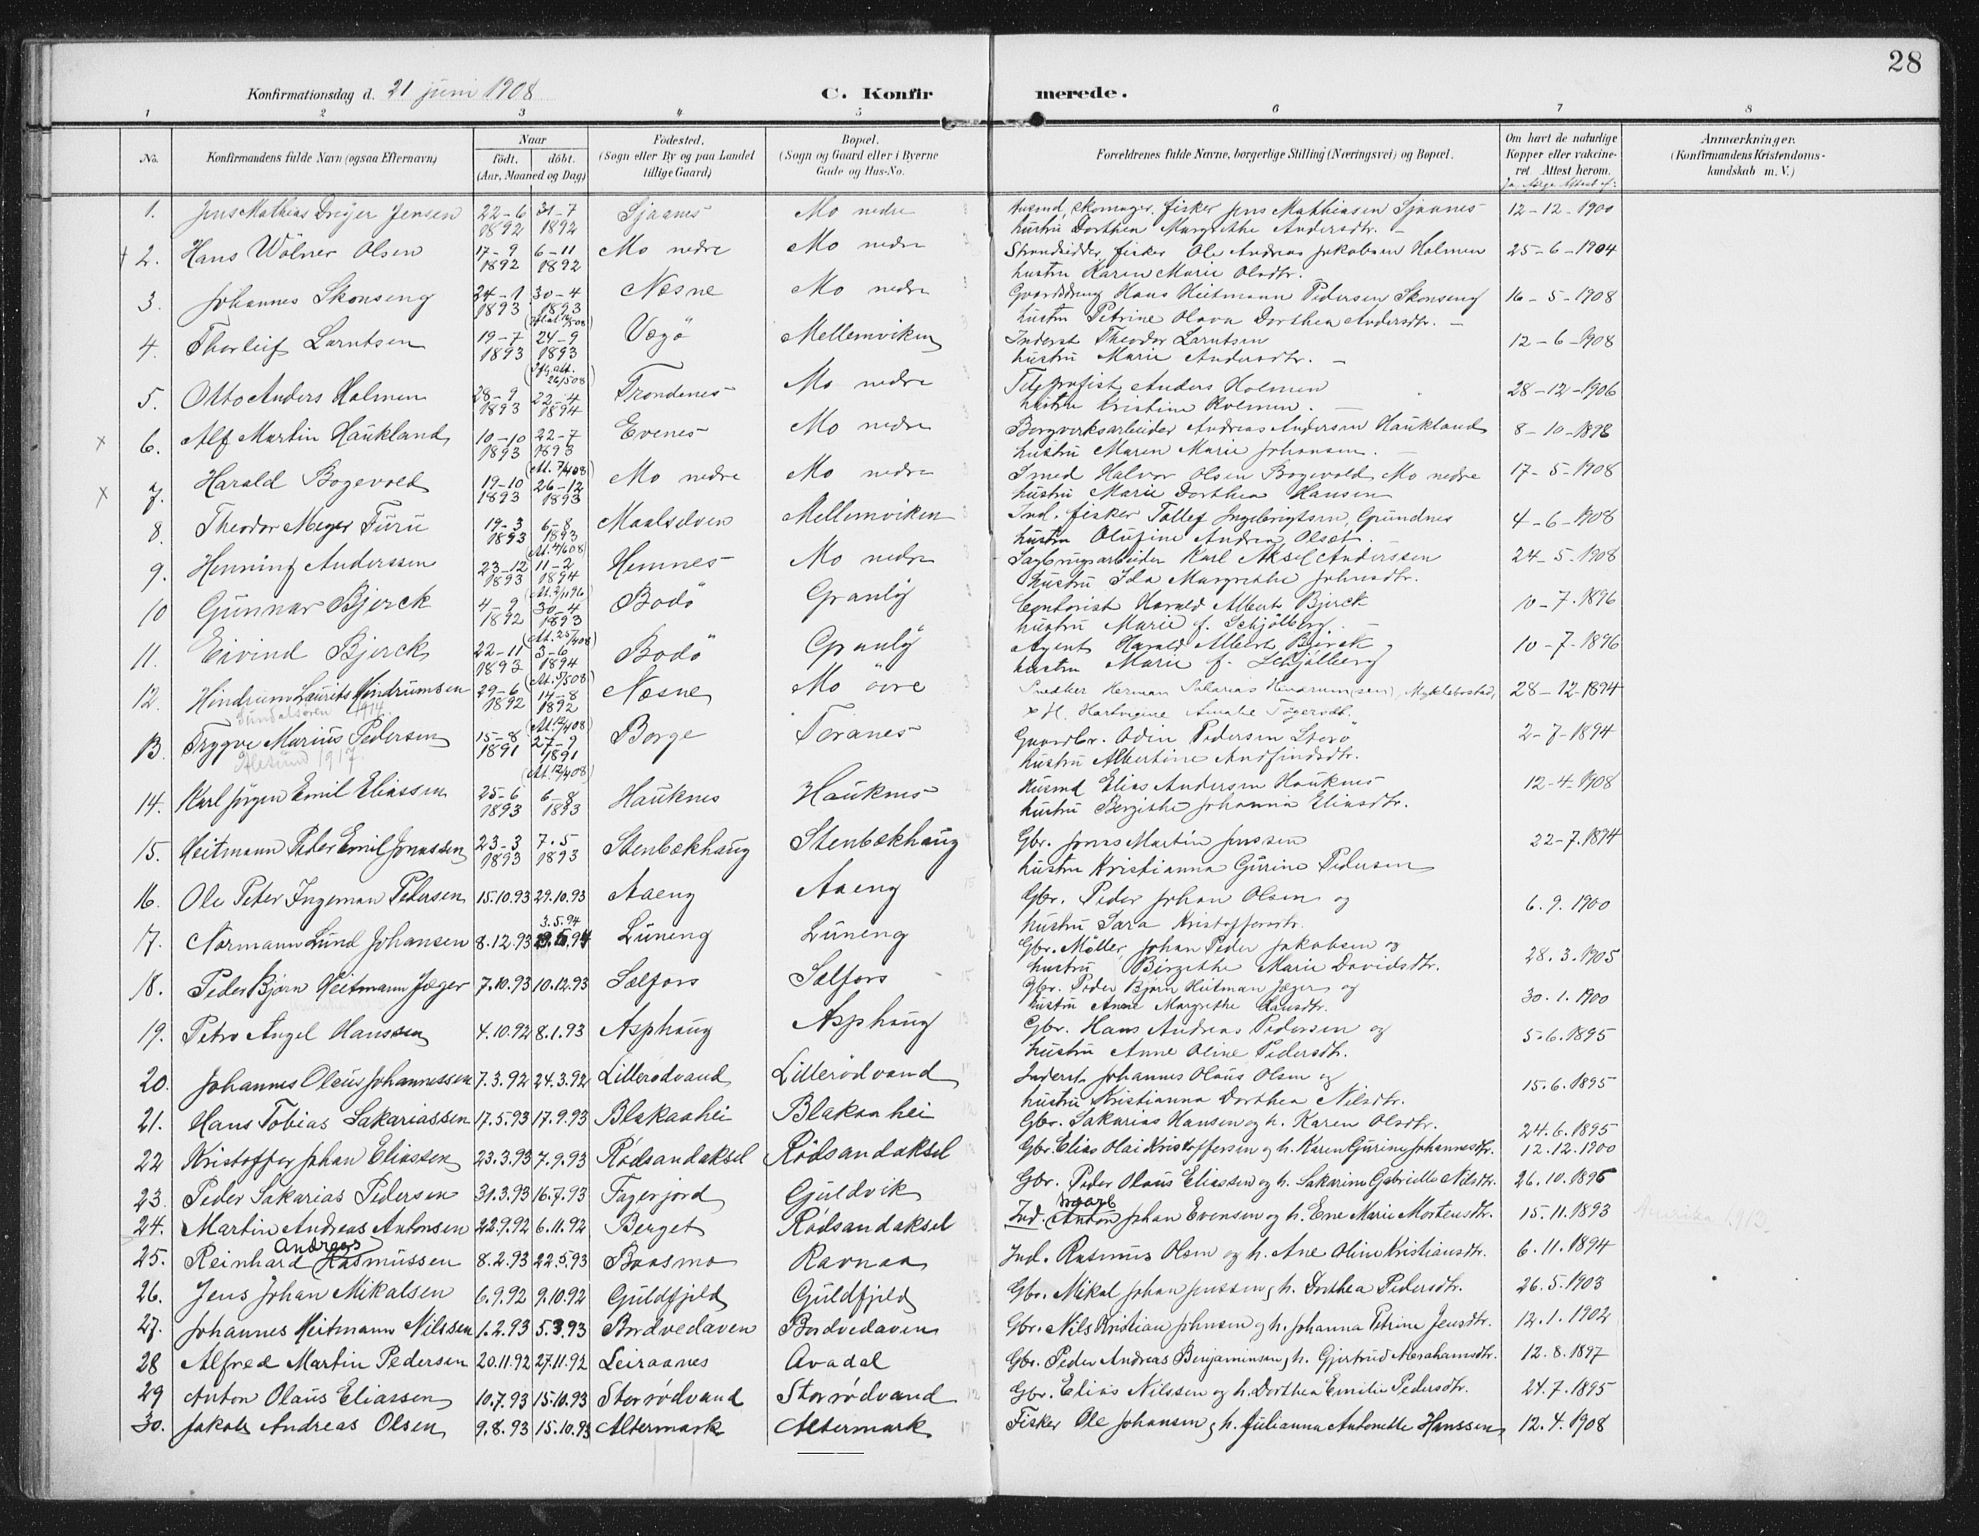 28
Konfirmationsdag d. 21 juni 1908
C. Konfirmerede.
1 2 3 4 5 6 7 8
No.
Konfirmandens fulde Navn (ogsaa Efternavn)
Naar
født. døbt.
(Aar, Maaned og Dag)
Fødested.
(Sogn eller By og paa Landet
tillige Gaard)
Bopæl.
(Sogn og Gaard eller i Byerne
Gade og Hus-No.
Forældrenes fulde Navne, borgerlige Stilling (Næringsvei) og Bopæl.
Om havt de naturlige
Kopper eller vakcine-
ret Attest herom.
Anmærkninger.
(Konfirmandens Kristendoms-
kundskab m. V.)
1. Jens Mathias Dreyer Jensen 22-6 1892 31-7 1892 Sjaanes Mo nedre fisker Jens Mathiasen Sjaanes 12-12-1900
hustru Dorthea Margrethe Andersdtr.
2. Hans Wölner Olsen 17-9 1892 6-11 1892 Mo nedre Mo nedre Strandsidder, fisker Ole Andreas Jakobsen Holmen 25-6-1904
hustru Karen Marie Olsdtr.
3. Johannes Skonseng 24-1 1893 30-4 1893 Nesne Mo nedre Hans Heitmann Pedersen Skonseng 16-5-1908
hustru Petrine Olava Dorthea Andersdtr.
4. Thorleif Larntsen 19-7 1893 24-9 1893 Vegö Mellemviken Inderst Theodor Larntsen 12-6-1908
hustru Marie Andersdtr.
5. Otto Anders Holmen 28-9 1893 22-4 1894 Trondenes Mo nedre Telegrafist Anders Holmen 28-12-1906
hustru Kristine Holmen.
6. Alf Martin Haukland 10-10 1893 22-7 1893 Evenes Mo nedre Bergverksarbeider Andreas Andersen Haukland 8-10-1898
hustru Maren Marie Johansen.
7. Harald Bogevold 19-10 1893 26-12 1893 Mo nedre Mo nedre Smed Halvor Olsen Bogevold, Mo nedre 17-5-1908
hustru Marie Dorthea Hansen
8. Theodor Meyer Furu 19-3 1893 6-8 1893 Maalselven Mellemviken Ind. fisker Tollef Ingebrigtsen, Grundnes 4-6-1908
hustru Olufine Andrea Olset.
9. Henning Anderssen 23-12 1893 11-2 1894 Hemnes Mo nedre Sagbrugsarbeider Karl Aksel Anderssen 24-5-1908
hustru Ida Margrethe Johnsdtr.
10 Gunnar Bjerck 4-9 1892 30-4 1893 Bodö Granly Contorist Harald Albert Bjerck 10-7-1896
hustru Marie f. Schjölberg.
11. Eivind Bjerck 22-11 1893 3-6 1894 Bodö Granly Agent Harald Albert Bjerck 10-7-1896
hustru Marie f. Schjölberg
12. Hindrum Laurits Hindrumsen 29-6 1892 14-8 1892 Nesne Mo övre Snedker Herman Sakarias Hindrum(sen), Myklebostad, 28-12-1894
H. Hartvigine Amalie
Sundalsören 1914.
13. Trygve Marius Pedersen 15-8 1891 27-9 1891 Borge Toranes Gaardbr. Odin Pedersen Storö 2-7-1894
hustru Albertine Andfindsdtr.
Aalesund 1917.
14. Karl Jörgen Emil Eliassen 25-6 1893 6-8 1893 Hauknes Hauknes Husmd Elias Andersen Hauknes 12-4-1908
hustru Bergithe Johanna Eliasdtr.
15. Heitmann Peder Emil Jonassen 23-3 1893 7-5 1893 Stenbekhaug Stenbækhaug Gbr. Jonas Martin Jenssen 22-7-1894
hustru Kristianna Gurine Pedersen
16. Ole Peter Ingeman Pedersen 15.10.93 29.10.93 Aaeng Aaeng Gbr. Peder Johan Olsen og 6.9.1900
hustru Sara Kristoffersdtr.
17. Normann Lund Johansen 8.12.93 3.5.94 Luneng Luneng Gbr. Møller Johan Peder Jakobsen og 28.3.1905
hustru Birgithe Marie Davidsdtr.
18. Peder Bjørn Heitmann Jæger 7.10.93 10.12.93 Selfors Selfors Gbr. Peder Bjørn Heitman Jæger og 30.1.1900
hustru Anne Margrethe Hansdtr.
19. Petro Angel Hanssen 4.10.92 8.1.93 Asphaug Asphaug Gbr. Hans Andreas Pedersen og 5.6.1895
hustru Anne Oline Pedersdtr.
20. Johannes Oleus Johannessen 7.3.92 24.3.92 Lillerødvand Lillerødvand Inderst Johannes Olaus Olsen og 15.6.1895
hustru Kristianna Dorthea Nilsdtr.
21. Hans Tobias Sakariassen 17.5.93 17.9.93 Blakaahei Blakaahei Gbr. Sakarias Hansen og h. Karen Olsdtr. 24.6.1895
22 Kristoffer Johan Eliassen 23.3.93 7.9.93 Rødsandaksel Rødsandaksel Gbr. Elias Olai Kristoffersen og h. Karen Gurine Johannesdtr. 12.12.1900
23. Peder Sakarias Pedersen 31.3.93 16.7.93 Fagerjord Guldvik Gbr. Peder Olaus Eliassen og h. Sakarine Gabrielle Nilsdtr. 26.10.1895
24. Martin Andreas Antonsen 22.9.92 6.11.92 Berget Rødsandaksel Ind. Anton Johan Evensen og h. Erne Marie Mortensdtr. 15.11.1893 Amerika 1913.
25. Reinhard Andreas Rasmussen 8.2.93 22.5.93 Baasmo Ravnaa Ind. Rasmus Olsen og h. Ane Oline Kristiansdtr. 6.11.1894
26. Jens Johan Mikalsen 6.9.92 9.10.92 Guldfjeld Guldfjeld Gbr. Mikal Johan Jenssen og h. Dorthea Pedersdtr. 26.5.1903
27. Johannes Heitmann Nilssen 1.2.93 5.3.93 Bordvedaven Bordvedaven Gbr. Nils Kristian Johnsen og h. Johanna Petrine Jensdtr. 12.1.1902
28 Alfred Martin Pedersen 20.11.92 27.11.92 Leiraanes Avadal Gbr. Peder Andreas Benjaminsen og h. Gjertrud Abrahamsdtr. 12.8.1897
29 Anton Olaus Eliassen 10.7.93 15.10.93 Storrødvand Storrødvand Gbr. Elias Nilssen og h. Dorthea Emilie Pedersdtr. 24.7.1895
30. Jakob Andreas Olsen 9.8.93 15.10.93 Altermark Altermark Fisker Ole Johansen og h. Julianna Antonette Hanssen 12.4.1908